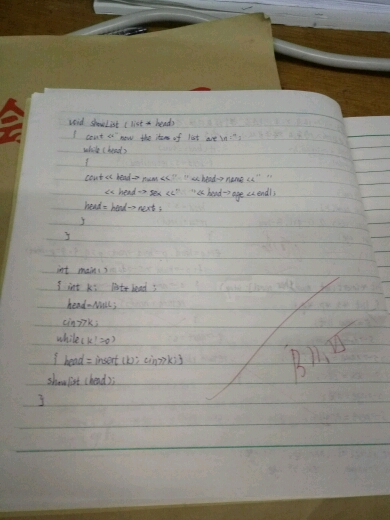 void showList (list * head)
{ cout <<" now the items of list are \n :";
while (head)
{
cout << head->num <<" " << head->name <<" "
<< head->sex <<" " << head->age << endl;
head = head->next;
}
}
int main()
{ int k; list * head;
head=NULL;
cin>>k;
while (k!=0)
{ head = insert (k); cin>>k; }
showlist (head);
}